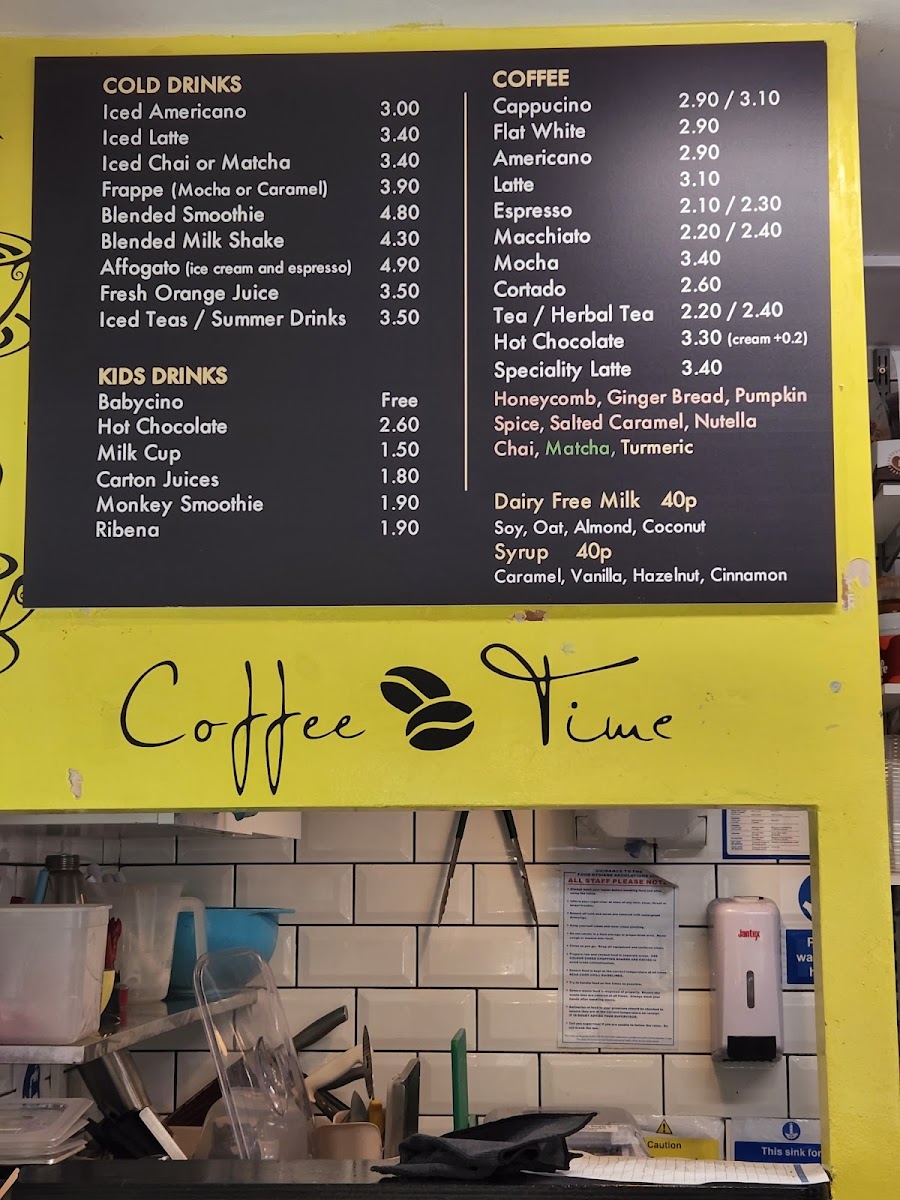 COLD DRINKS
Iced Americano 3.00
Iced Latte 3.40
Iced Chai or Matcha 3.40
Frappe (Mocha or Caramel) 3.90
Blended Smoothie 4.80
Blended Milk Shake 4.30
Affogato (ice cream and espresso) 4.90
Fresh Orange Juice 3.50
Iced Teas / Summer Drinks 3.50
KIDS DRINKS
Babycino Free
Hot Chocolate 2.60
Milk Cup 1.50
Carton Juices 1.80
Monkey Smoothie 1.90
Ribena 1.90
COFFEE
Cappucino 2.90 / 3.10
Flat White 2.90
Americano 2.90
Latte 3.10
Espresso 2.10 / 2.30
Macchiato 2.20 / 2.40
Mocha 3.40
Cortado 2.60
Tea / Herbal Tea 2.20 / 2.40
Hot Chocolate 3.30 (cream +0.2)
Speciality Latte 3.40
Honeycomb, Ginger Bread, Pumpkin
Spice, Salted Caramel, Nutella
Chai, Matcha, Turmeric
Dairy Free Milk 40p
Soy, Oat, Almond, Coconut
Syrup 40p
Caramel, Vanilla, Hazelnut, Cinnamon
Coffee Time
GUIDANCE TO THE
ALL STAFF PLEASE NOTE
Jantex
Caution
This sink for